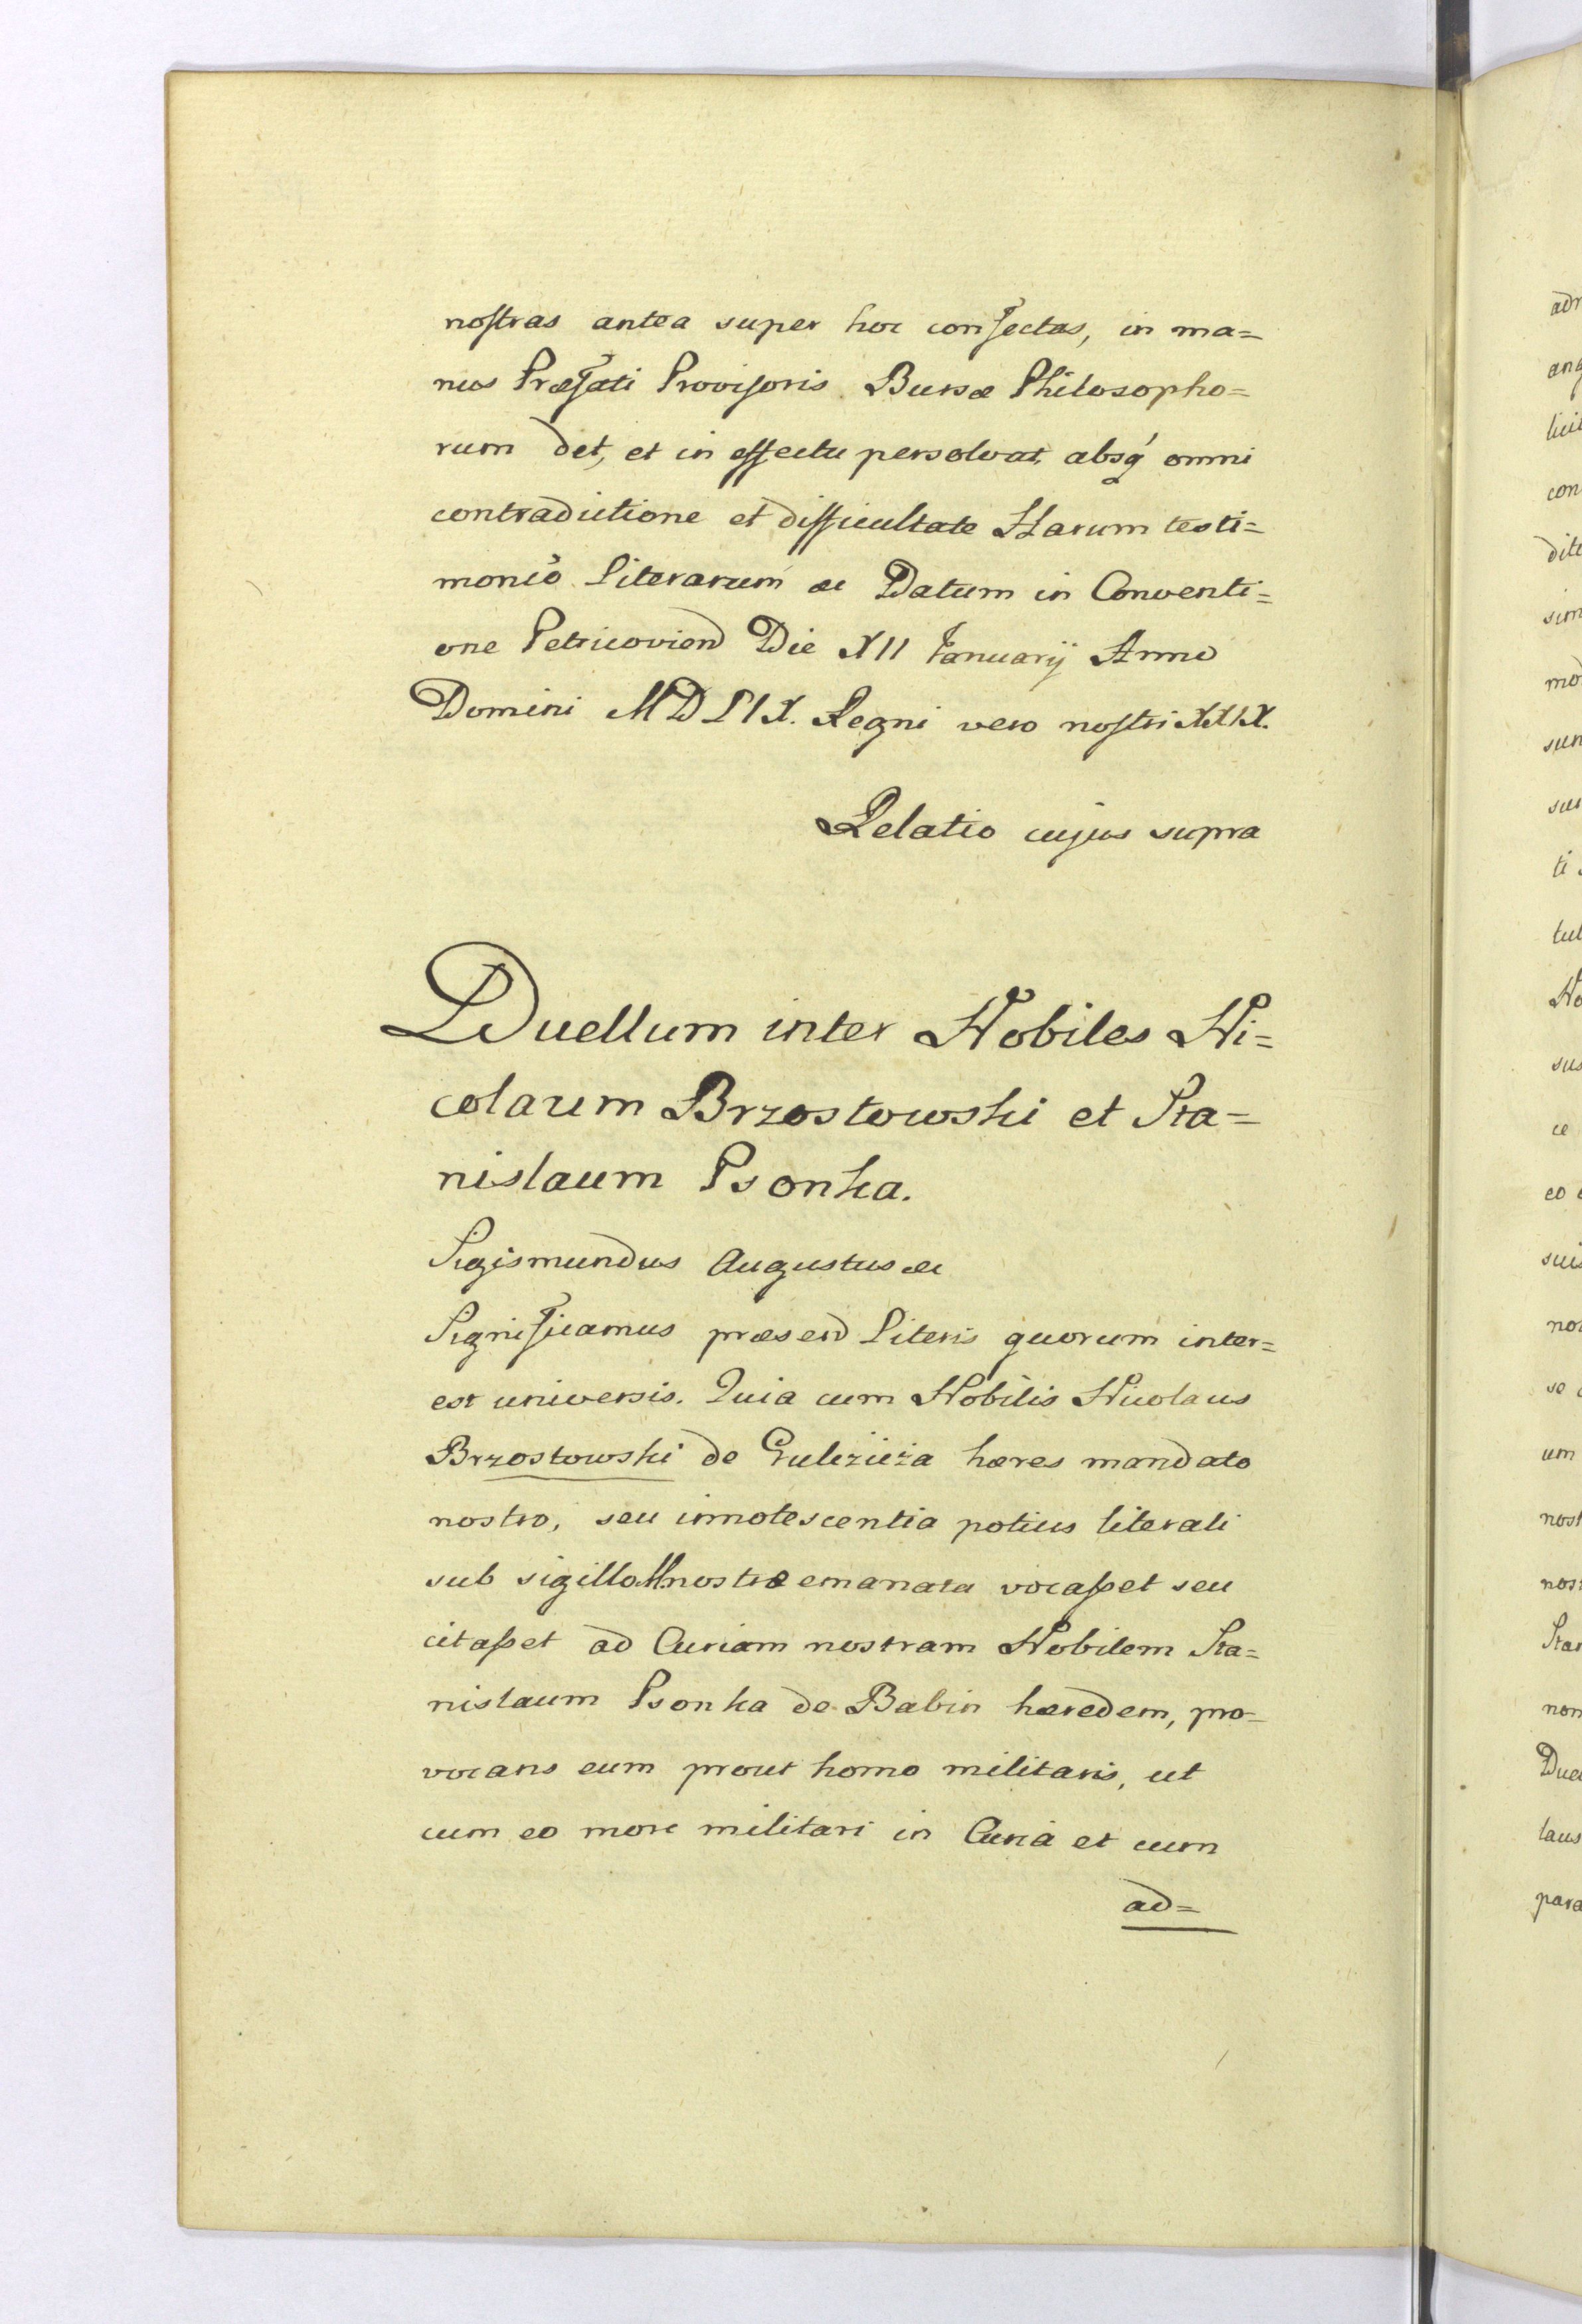 nostras antea super hoc confectas, in ma=
nus Præfati Provisoris Bursæ Philosopho=
rum det, et in effectu persolvat absq́ omni
contradictione et difficultate Harum testi=
monio Literarum &c Datum in Conventi=
one Petricovien Die XII Januarij Anno
Domini MDLIX. Regni vero nostri XXIX.
Relatio cujus supra
Duellum inter Nobiles Ni=
colaum Brzostowski et Sta=
nislaum Psonka.
Sigismundus Augustus &c
Significamus præsen Literis quorum inter=
est universis. Quia cum Nobilis Nicolaus
Brzostowski de hæres mandato
nostro, seu innotescentia potius literali
sub sigillo nostro emanata vocasset seu
citasset ad Curiam nostram Nobilem Sta=
nislaum Psonka de Babin hæredem, pro=
vocans eum prout homo militaris, ut
cum eo more militari in Curia et cum
ad=